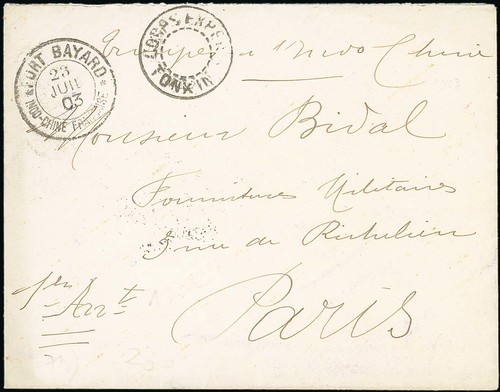 FORT BAYARD
23
JUIL
03
INDO-CHINE FRANÇAISE
CORPS EXPÉD
TONKIN
Troupes d'Indo Chine
Monsieur Bidal
Fournitures Militaires
rue de Richelieu
Paris
1er Arrt